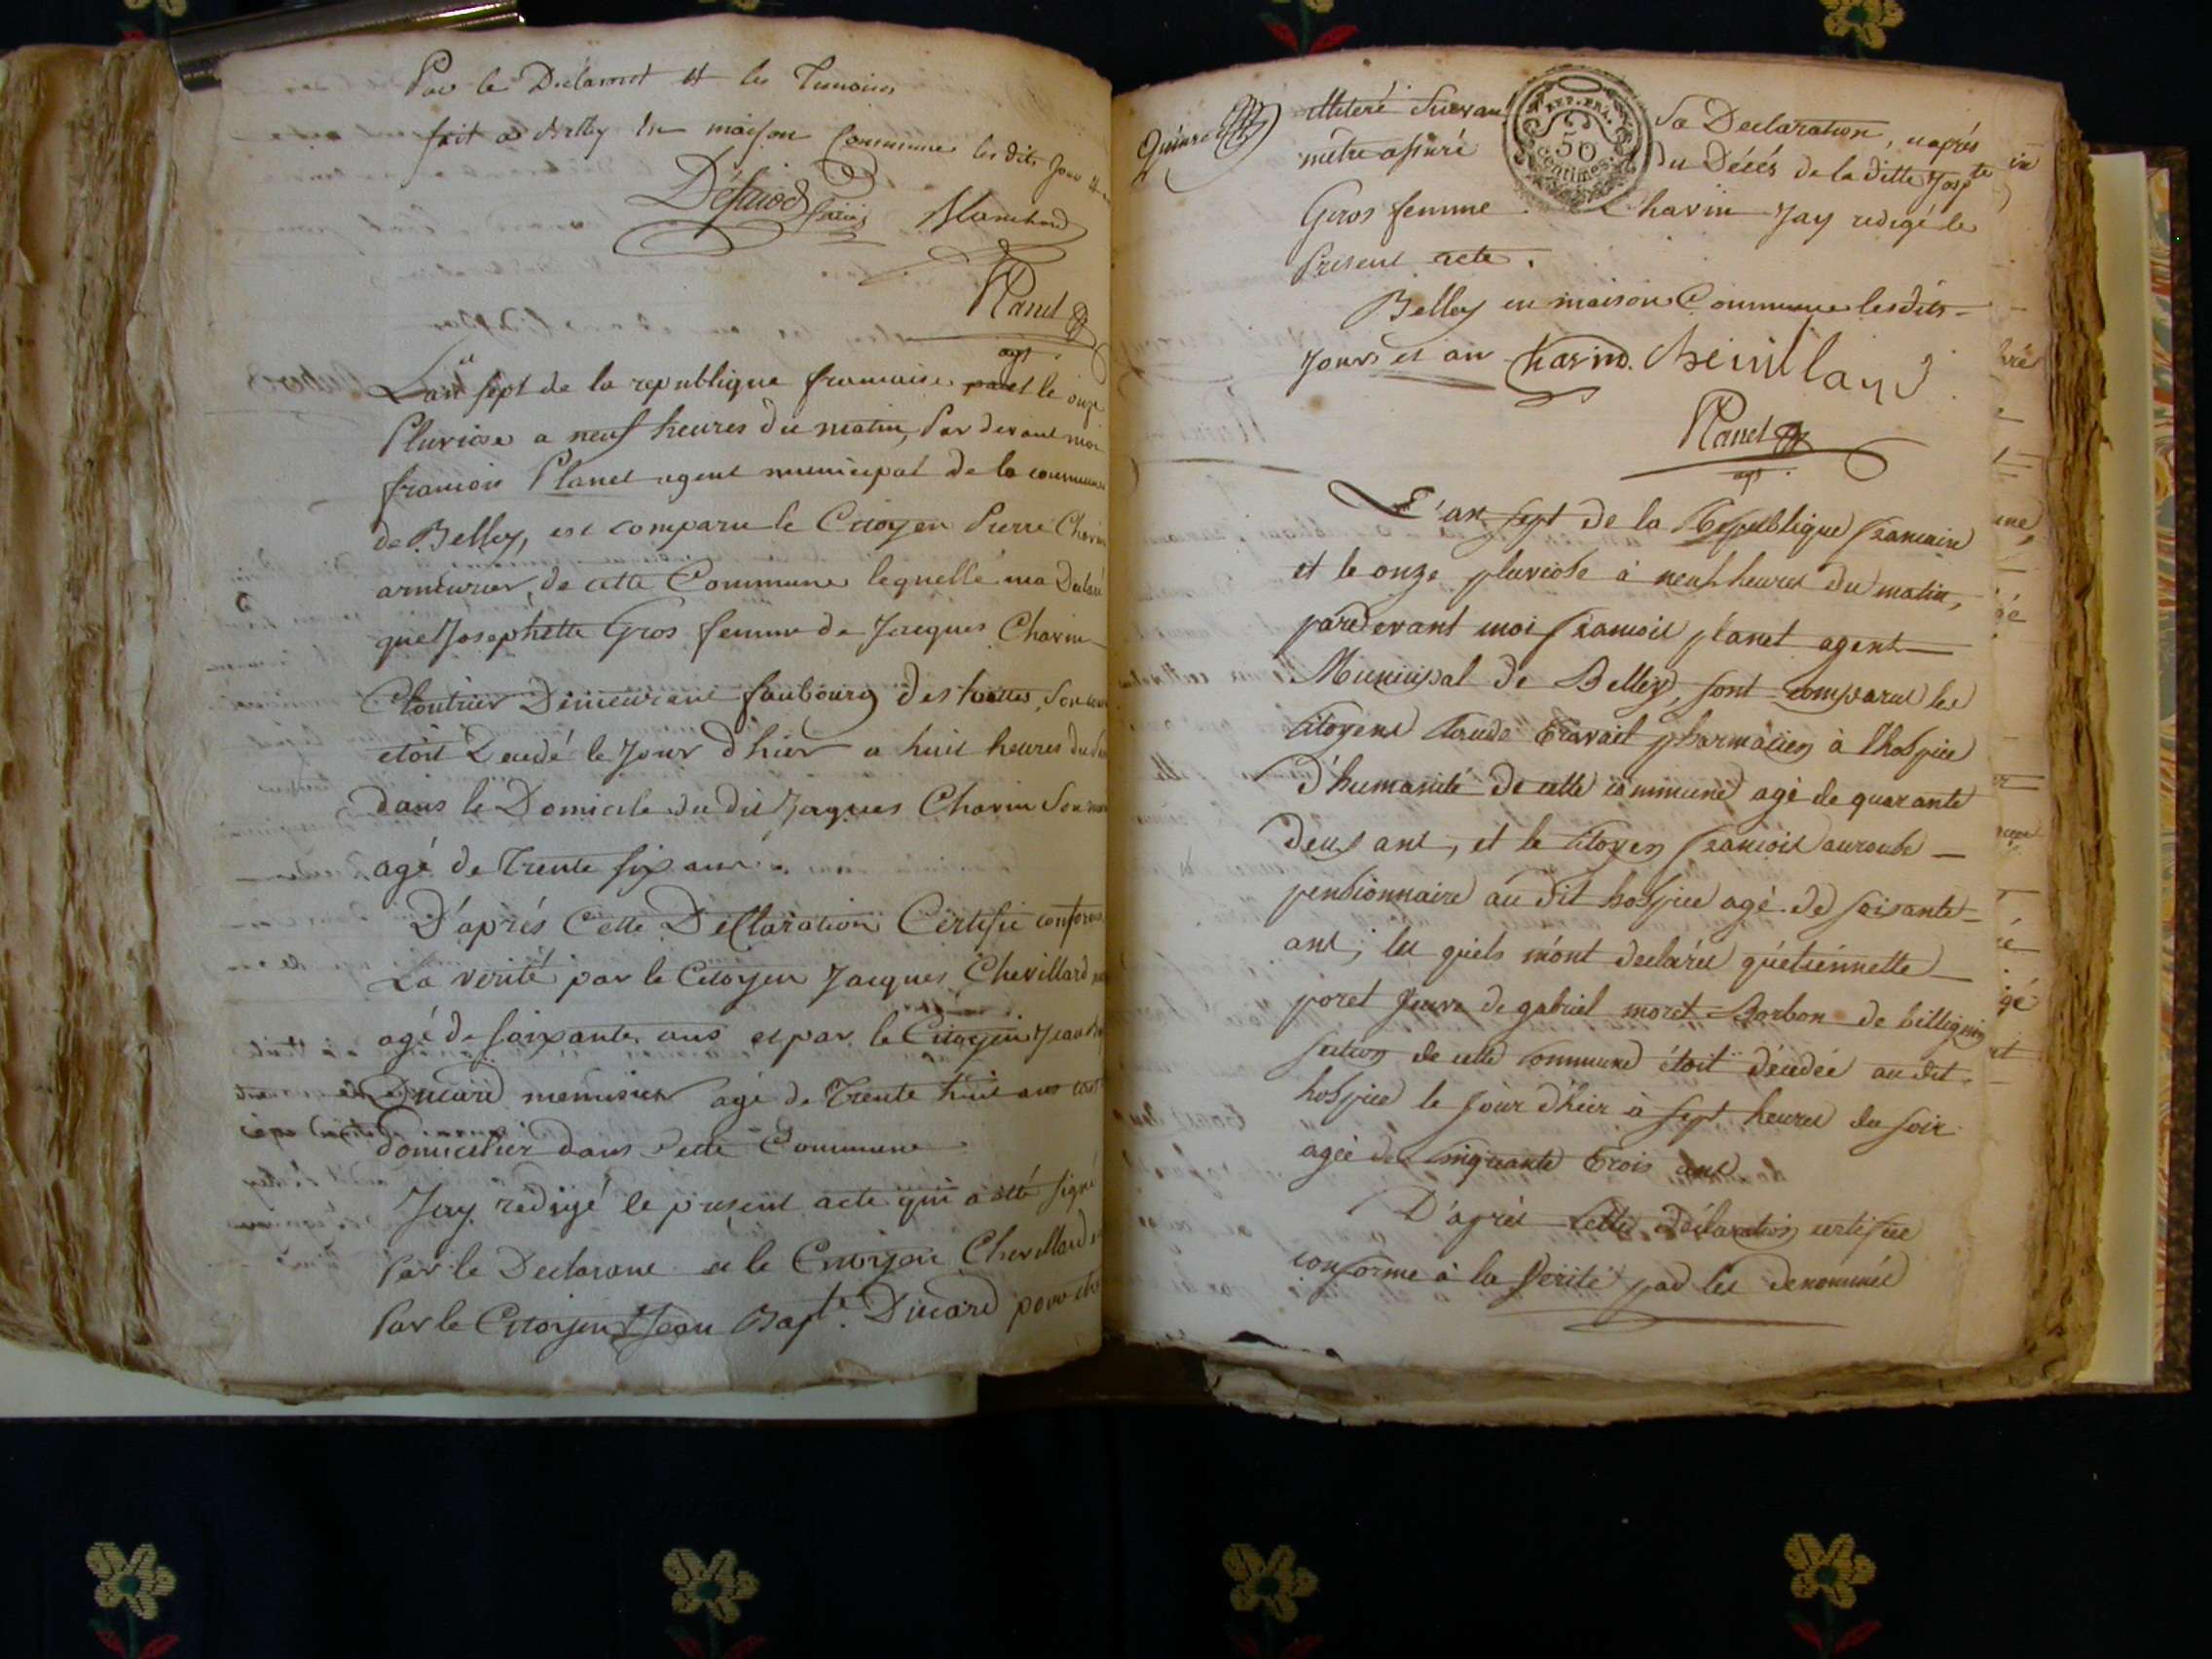 Par le Declarant et les Temoins
fait a Belley en maison Commune les dits Jour et
Blanchard
Planet
agt
L'an sept de la republique francaise et le onze
Pluviose a neuf heures du matin, Par devant moi
francois Planet agent municipal de la commune
de Belley, est comparu le Citoyen Pierre Charin
armeurier, de cette Commune lequelle ma Declaré
que Josephette Gros femme de Jacques Charin
Cloutrier Demeurant faubourg des
etoit Decedé le Jour d'hier a huit heures du
dans le Domicile du dit Jaques Charin Son
agé de Trente six ans.
D'aprés Cette Declaration Certifié conforme
La verité par le Citoyen Jacques Chevillard
agé de soixante ans et par le Citoyen Jean
Ducard menusier agé de Trente huit ans
domicilier dans Cette Commune
Jay redigé le present acte qui a été signé
Par le Declarant et le Citoyen Chevillard
Par le Citoyen Jean Bapte. Ducard pour
illiteré Suivant Sa Declaration, uaprés
REP. FRA.
50
centimes.
mêtre assuré du Décés de la ditte Jospte
Gros femme Charin Jay redigé le
Present acte.
Belley en maison Commune les dits
Jours et an Charin. Chevillard
Planet
agt.
L'an sept de la Republique francaise
et le onze pluviose à neuf heures du matin,
pardevant moi francois planet agent
Municipal de Belley, sont comparus les
Citoyens Claude Travail pharmacien à l'hospice
d'humanité de cette commune agé de quarante
deux ans, et le Citoyen francois
pensionnaire au dit hospice agé de soisante
ans, les quels m'ont declarés qu'etiennette
poret veuve de gabriel moret Borbon de billignin
section de cette commune étoit décédée au dit
hospice le jour d'hier à sept heures du soir
agée de cinquante trois ans
D'aprés cette déclaration certifiée
conforme à la verité par les denommés